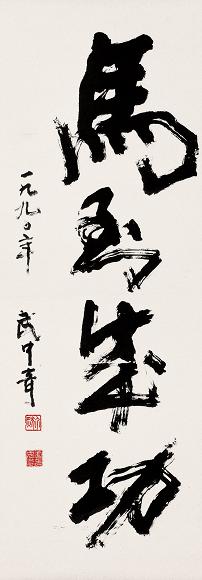 馬到成功
一九九〇年
武中奇